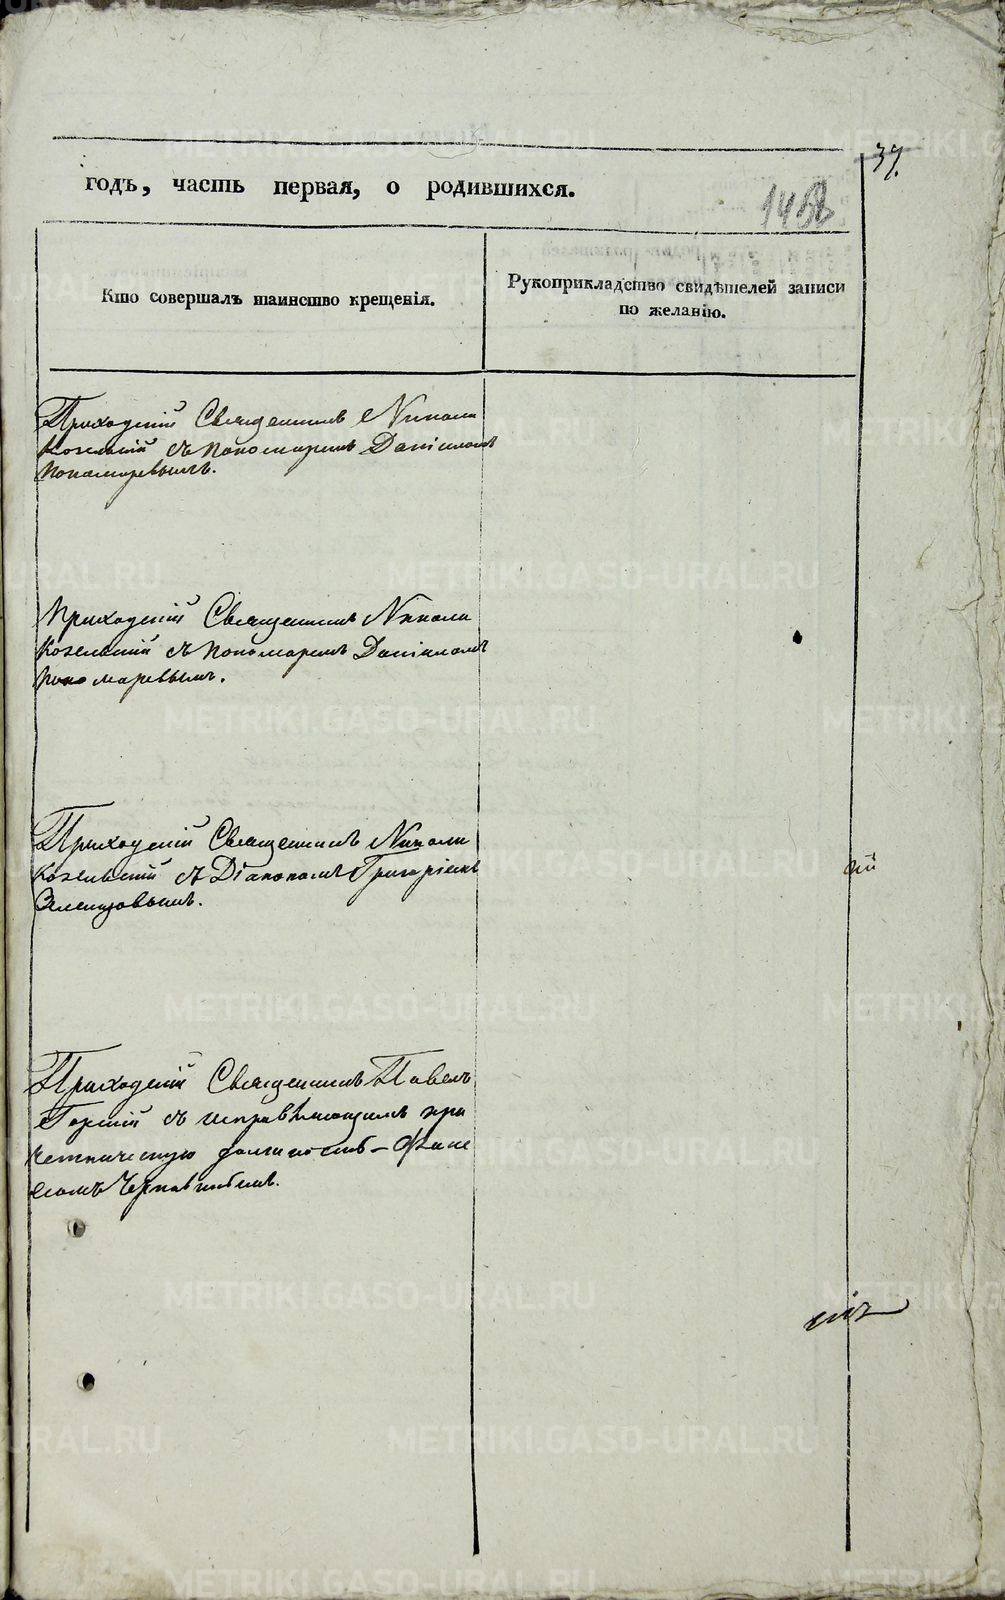 37.
годъ, часть первая, о родившихся.
Кто совершалъ таинство крещенія.
Рукоприкладство свидѣтелей записи
по желанію.
Приходскій Священникъ Николай
Козельскій съ Пономаремъ Даніиломъ
Пономаревымъ.
Приходскій Священникъ Николай
Козельскій съ Пономаремъ Даніиломъ
Пономаревымъ.
Приходскій Священникъ Николай
Козельскій съ Діакономъ Григоріемъ
Приходскій Священникъ Павелъ
Горскій съ исправляющимъ при
четническую должность
METRIKI.GASO-URAL.RU